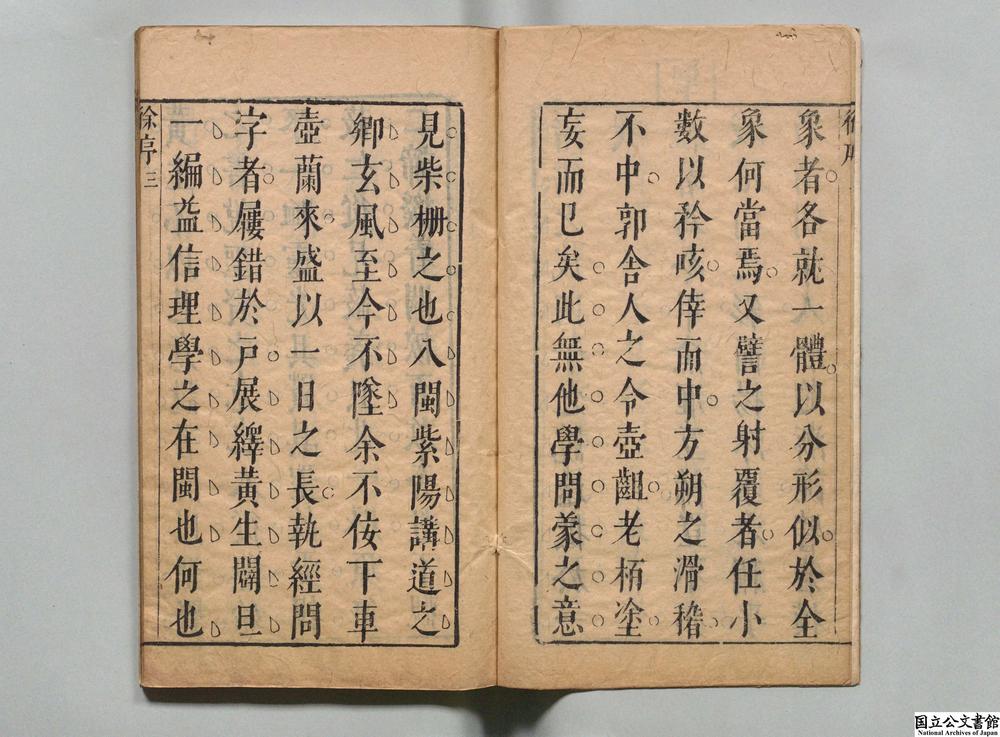 象者各就一體以分形似於全
象何當焉又譬之射覆者任小
數以矜咳倖而中方朔之滑稽
不中郭舍人之令壺齟老栢塗
妄而巳矣此無他學問蒙之意
見柴栅之也入閩紫陽講道之
鄉玄風至今不墜余不佞下車
壺蘭來盛以一日之長執經問
字者屨錯於戸展繹黄生闢旦
一編益信理學之在閩也何也
徐序 三
国立公文書館
National Archives of Japan